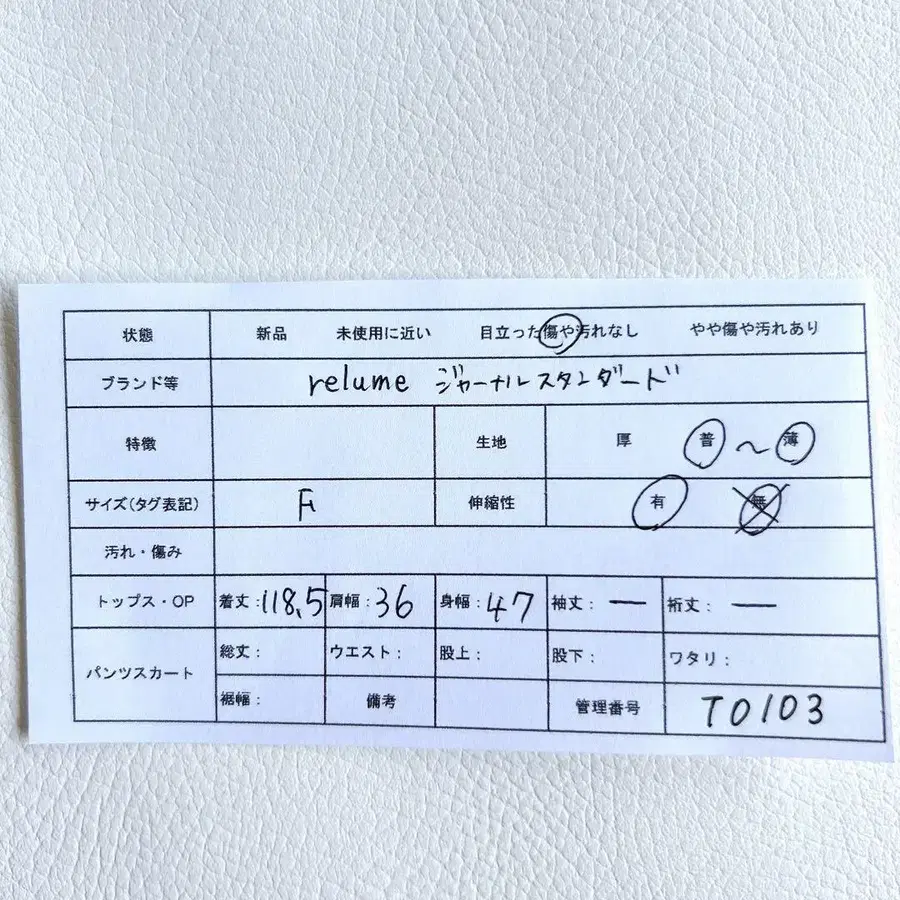 状態 新品 未使用に近い 目立った傷や汚れなし やや傷や汚れあり
ブランド等 relume ジャーナルスタンダード
特徴 生地 厚 普 〜 薄
サイズ(タグ表記) F 伸縮性 有 無
汚れ・傷み
トップス・OP 着丈:118.5 肩幅:36 身幅:47 袖丈:ー 裄丈:ー
パンツスカート 総丈: ウエスト: 股上: 股下: ワタリ:
裾幅: 備考 管理番号 T0103